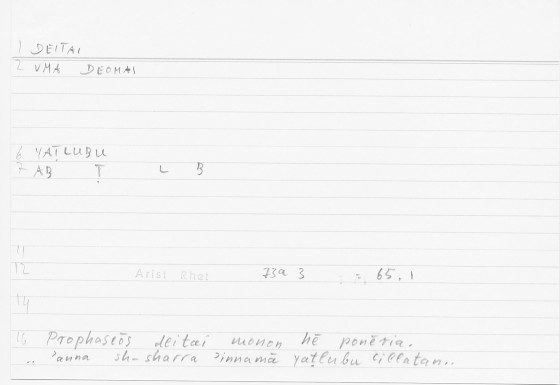 1 DEITAI
2 VMA DEOMAI
6 YAṬLUBU
7 AB Ṭ L B
11
12 Arist Rhet 73a 3 ; =, 65.1
14
16 Prophaseōs deitai monon hē ponēria.
.. ʾanna sh-sharra ʾinnamā yaṭlubu ʿillatan..